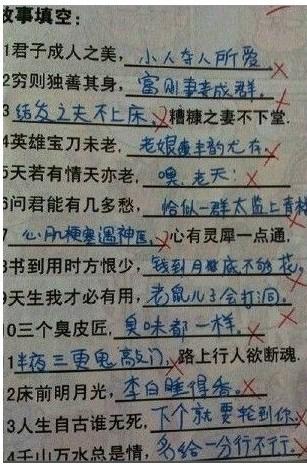 故事填空：
1君子成人之美，小人夺人所爱
2穷则独善其身，富则妻妾成群。
3结发之夫不上床，糟糠之妻不下堂.
4英雄宝刀未老，老娘风韵尤存
5天若有情天亦老，噢，老天！
6问君能有几多愁，恰似一群太监上青楼
7心肌梗塞遇神医，心有灵犀一点通,
8书到用时方恨少，钱到月底不够花
9天生我才必有用，老鼠儿子会打洞.
10三个臭皮匠，臭味都一样。
1半夜三更鬼敲门，路上行人欲断魂.
2床前明月光，李白睡得香。
3人生自古谁无死，下个就要轮到你
4千山万水总是情，多给一分行不行。